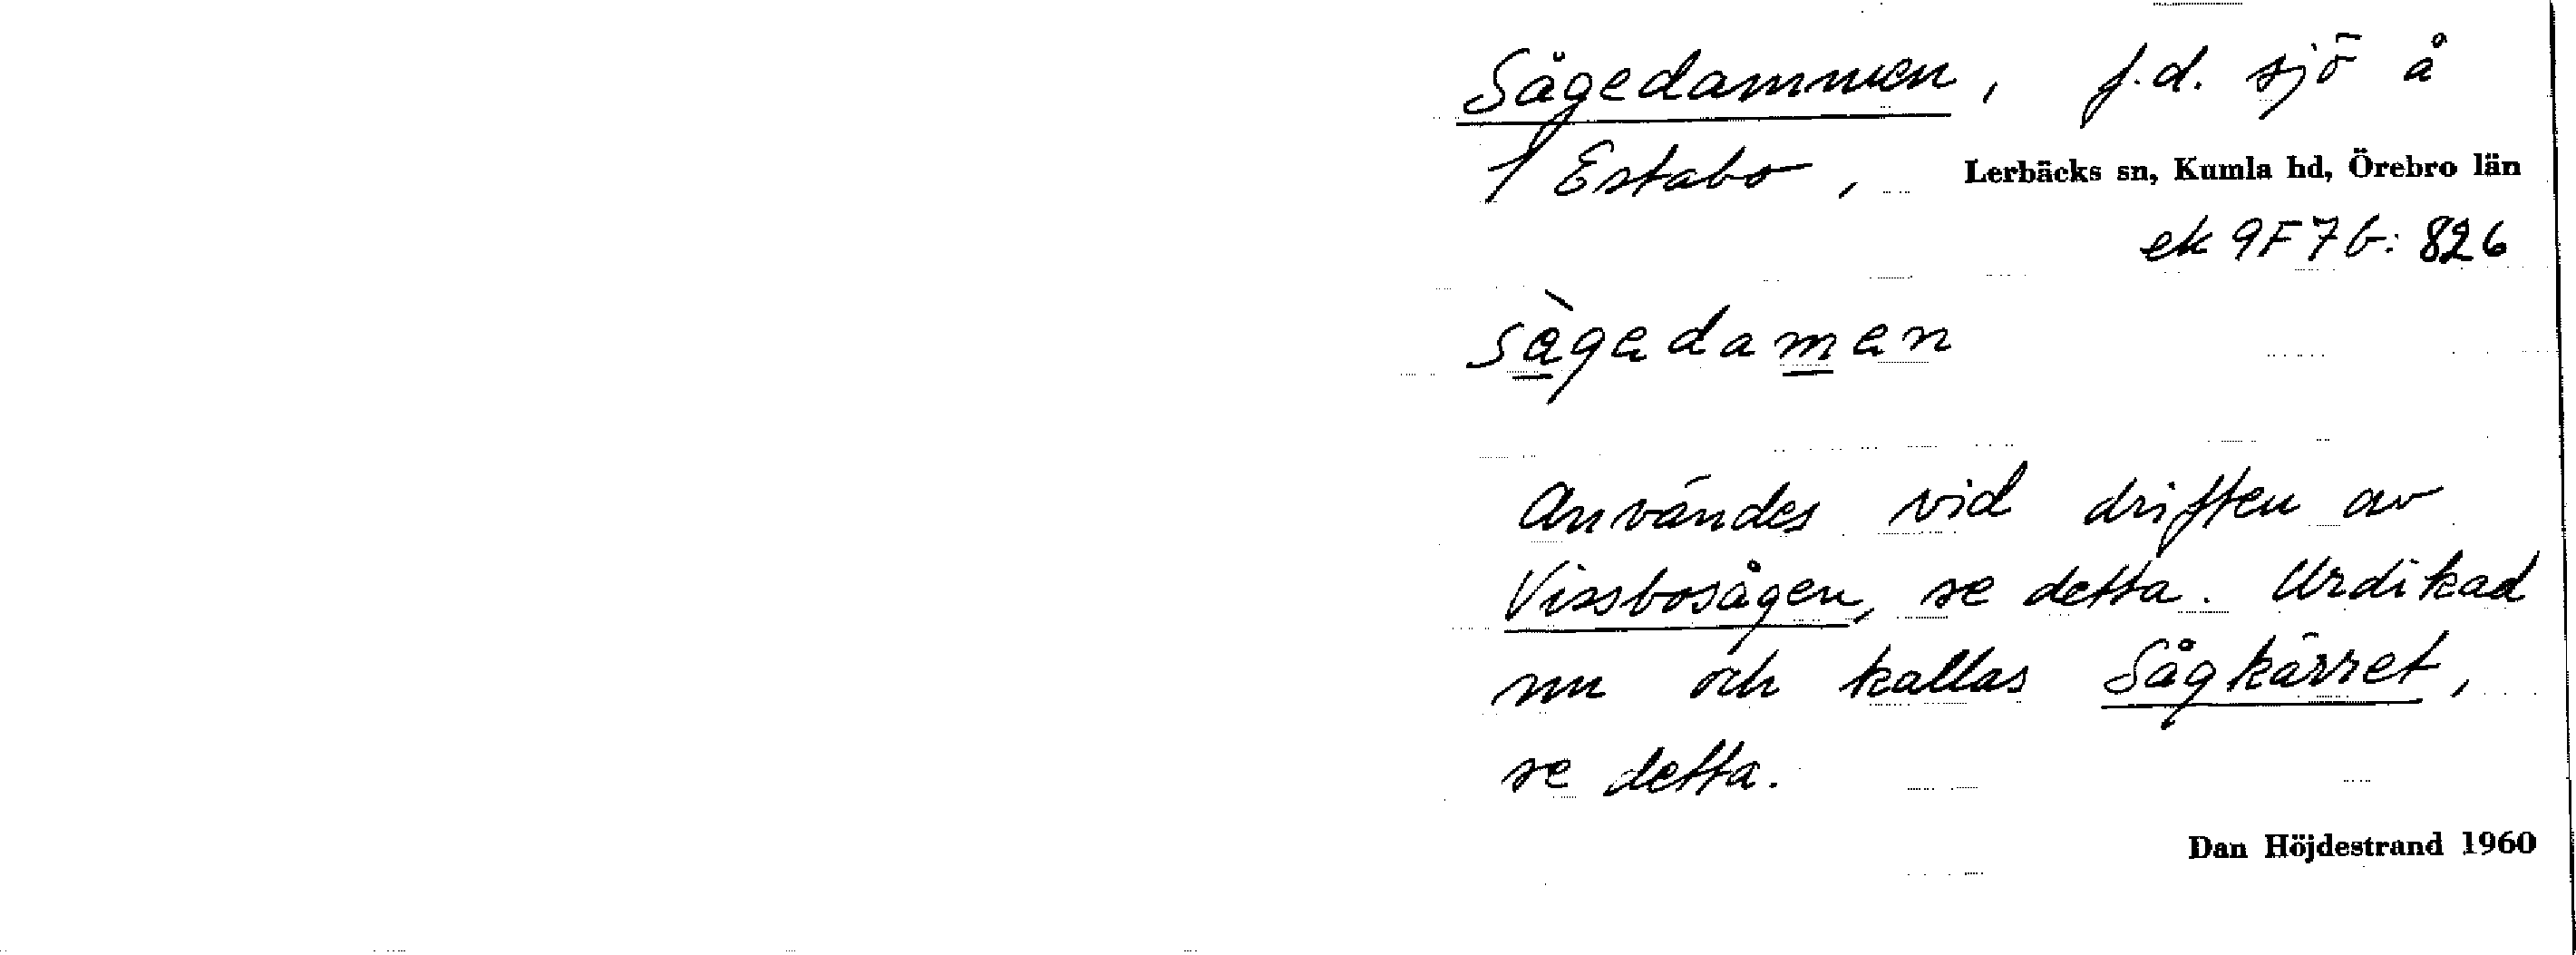 Sågedammen, f.d. sjö å
1/ Estabo, Lerbäcks sn, Kumla hd, Örebro län
ek 9F7b: 826
sàgedamen
Användes vid driften av
Vissbosågen, se detta. Urdikad
nu och kallas Sågkärret,
se detta.
Dan Höjdestrand 1960